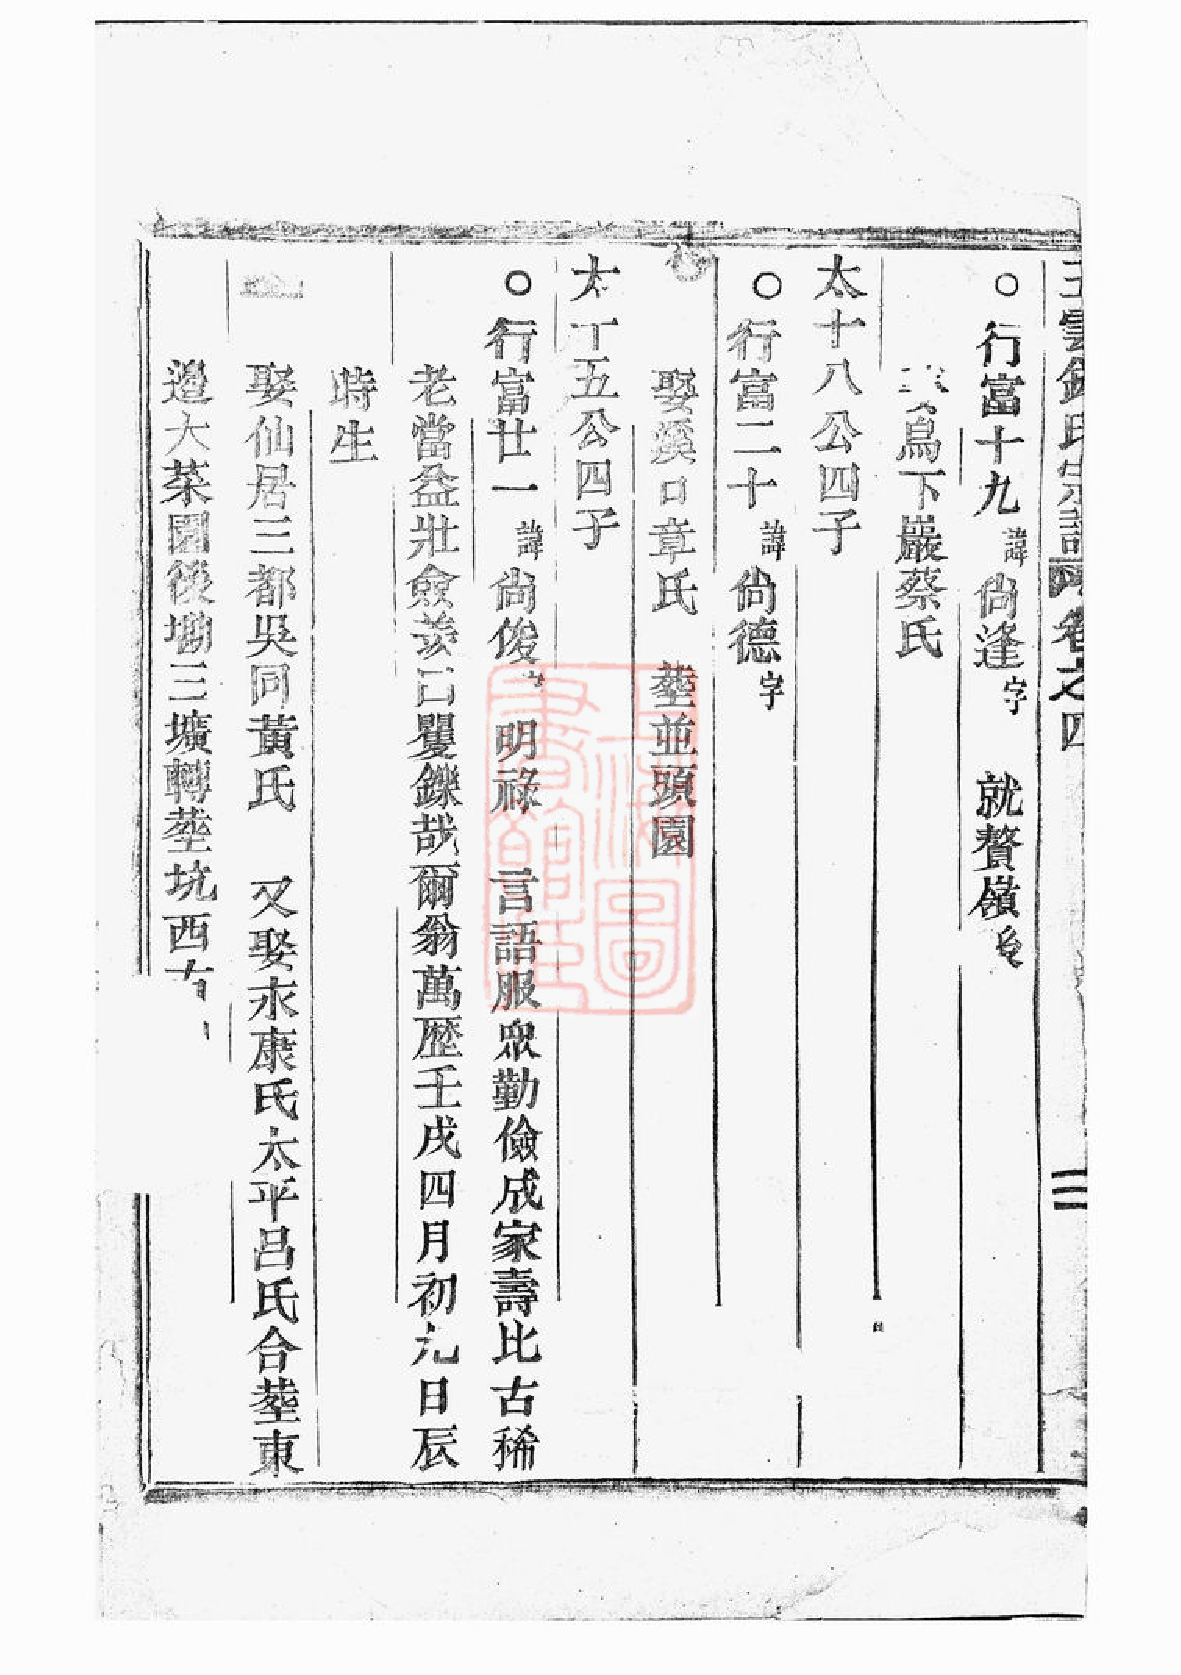 五雲錢氏宗譜 卷之四 三
○行富十九諱尙逢字 就贅嶺
烏下巖蔡氏
太十八公四子
○行富二十諱尙德字
娶溪口章氏 塟並頭園
太十五公四子
○行富廿一諱尙俊字明祿 言語服衆勤儉成家壽比古稀
老當益壯僉羨曰矍鑠哉爾翁萬歷壬戌四月初九日辰
時生
娶仙居三都吳同黃氏 又娶永康氏太平呂氏合塟東
邉大菜園後塝三壙轉塟坑西
上海圖書館藏